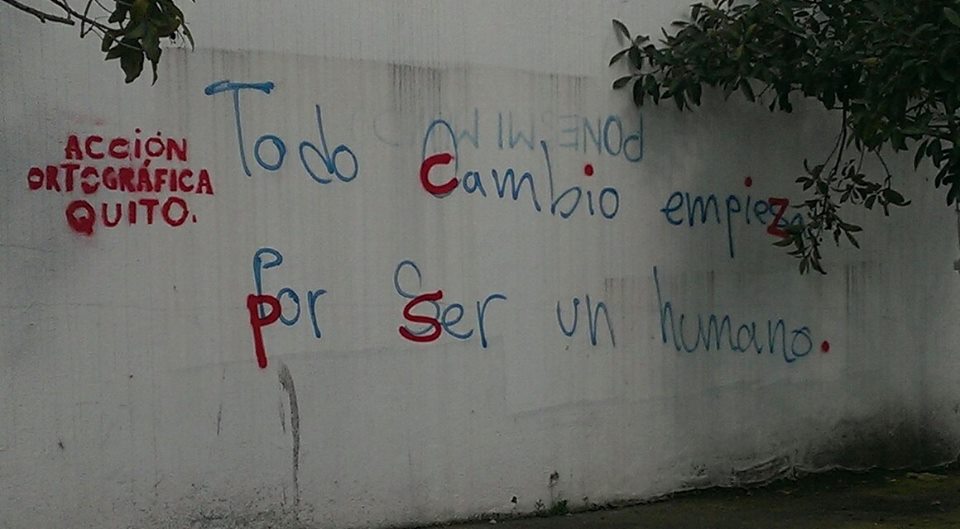 ACCIÓN
ORTOGRÁFICA
QUITO.
Todo cambio empieza
por ser un humano.